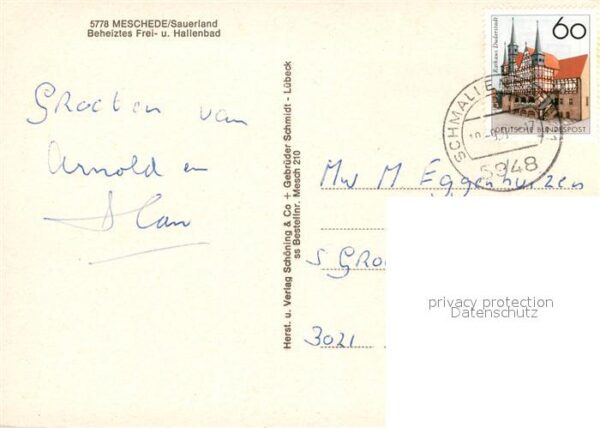 5778 MESCHEDE/Sauerland
Beheiztes Frei- u. Hallenbad
Groeten van
Arnold en
Herst. u. Verlag Schöning & Co + Gebrüder Schmidt - Lübeck
ss Bestellnr. Mesch 210
60
Rathaus Duderstadt
DEUTSCHE BUNDESPOST
5948
Mw M Eggenhuizen
3021
privacy protection
Datenschutz